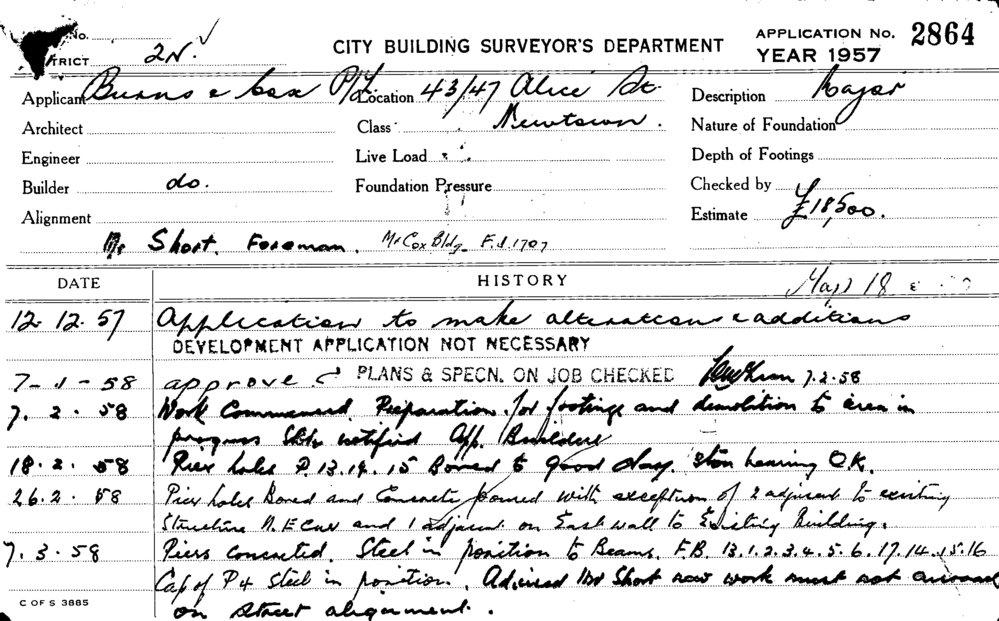 No.
TRICT 2N. ✓
CITY BUILDING SURVEYOR'S DEPARTMENT
APPLICATION No. 2864
YEAR 1957
Applicant Burns & Cox P/L Location 43/47 Alice St. Description
Architect Class Newtown. Nature of Foundation
Engineer Live Load Depth of Footings
Builder do. Foundation Pressure Checked by
Alignment Estimate £18,500.
Mr Short. Foreman. Mr Cox Bldg. F.J.1707
DATE HISTORY
Map 18
12.12.57 Application to make alterations & additions
DEVELOPMENT APPLICATION NOT NECESSARY
7-1-58 approved PLANS & SPECN. ON JOB CHECKED 7.2.58
7.2.58 Work Commenced. Preparation for footings and demolition to area in
progress notified App. Builders
18.2.58 Pier holes P.13.14.15 Bored to good clay. bearing O.K.
26.2.58 Pier holes Bored and Concrete poured with exception of 2 adjacent to existing
Structure N.E Cnr and 1 adjacent on East wall to Existing Building.
7.3.58 Piers concreted. Steel in position to Beams. F.B. 13.1.2.3.4.5.6.17.14.15.16
Cap of P4 Steel in position. Advised Mr Short new work must not
on Street alignment.
C OF S 3885